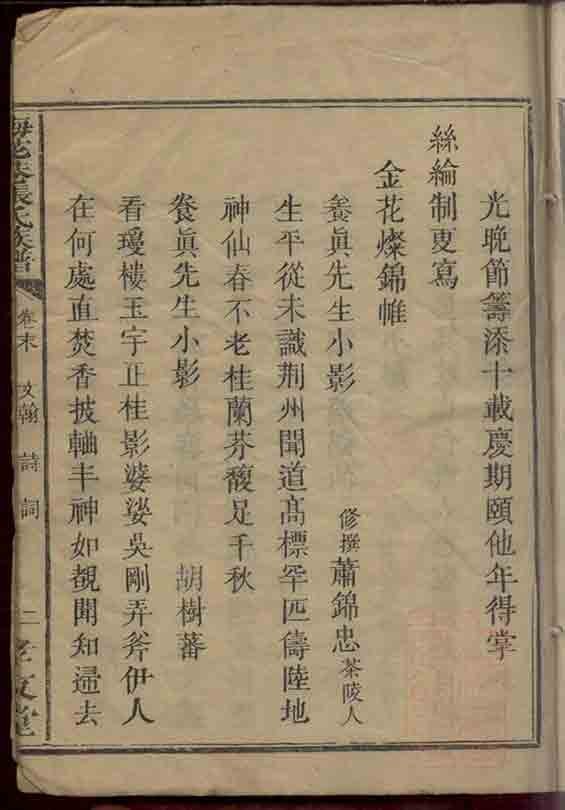 光晚節籌添十載慶期頤他年得掌
絲綸制更寫
金花燦錦帷
養眞先生小影 修撰蕭錦忠茶陵人
生平從未識荆州聞道髙標罕匹儔陸地
神仙春不老桂蘭芥馥足千秋
養眞先生小影 胡樹蕃
看瓊樓玉宇正桂影婆娑吳剛弄斧伊人
在何處直焚香披軸丰神如覩聞知歸去
張氏族譜 卷末 文翰 詩詞 二